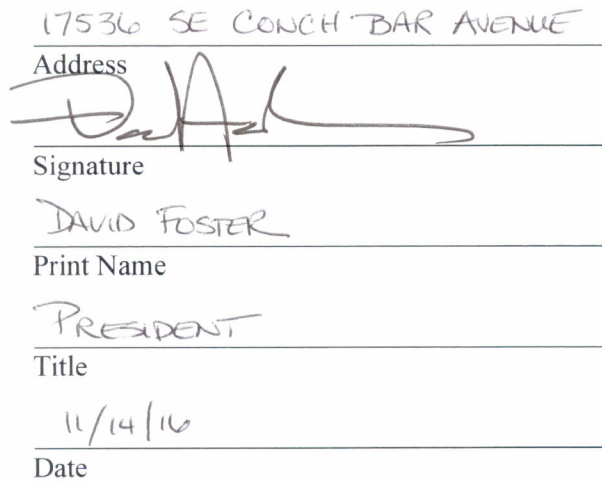 17536 SE CONCH BAR AVENUE
Address
Signature
DAVID FOSTER
Print Name
PRESIDENT
Title
11/14/16
Date